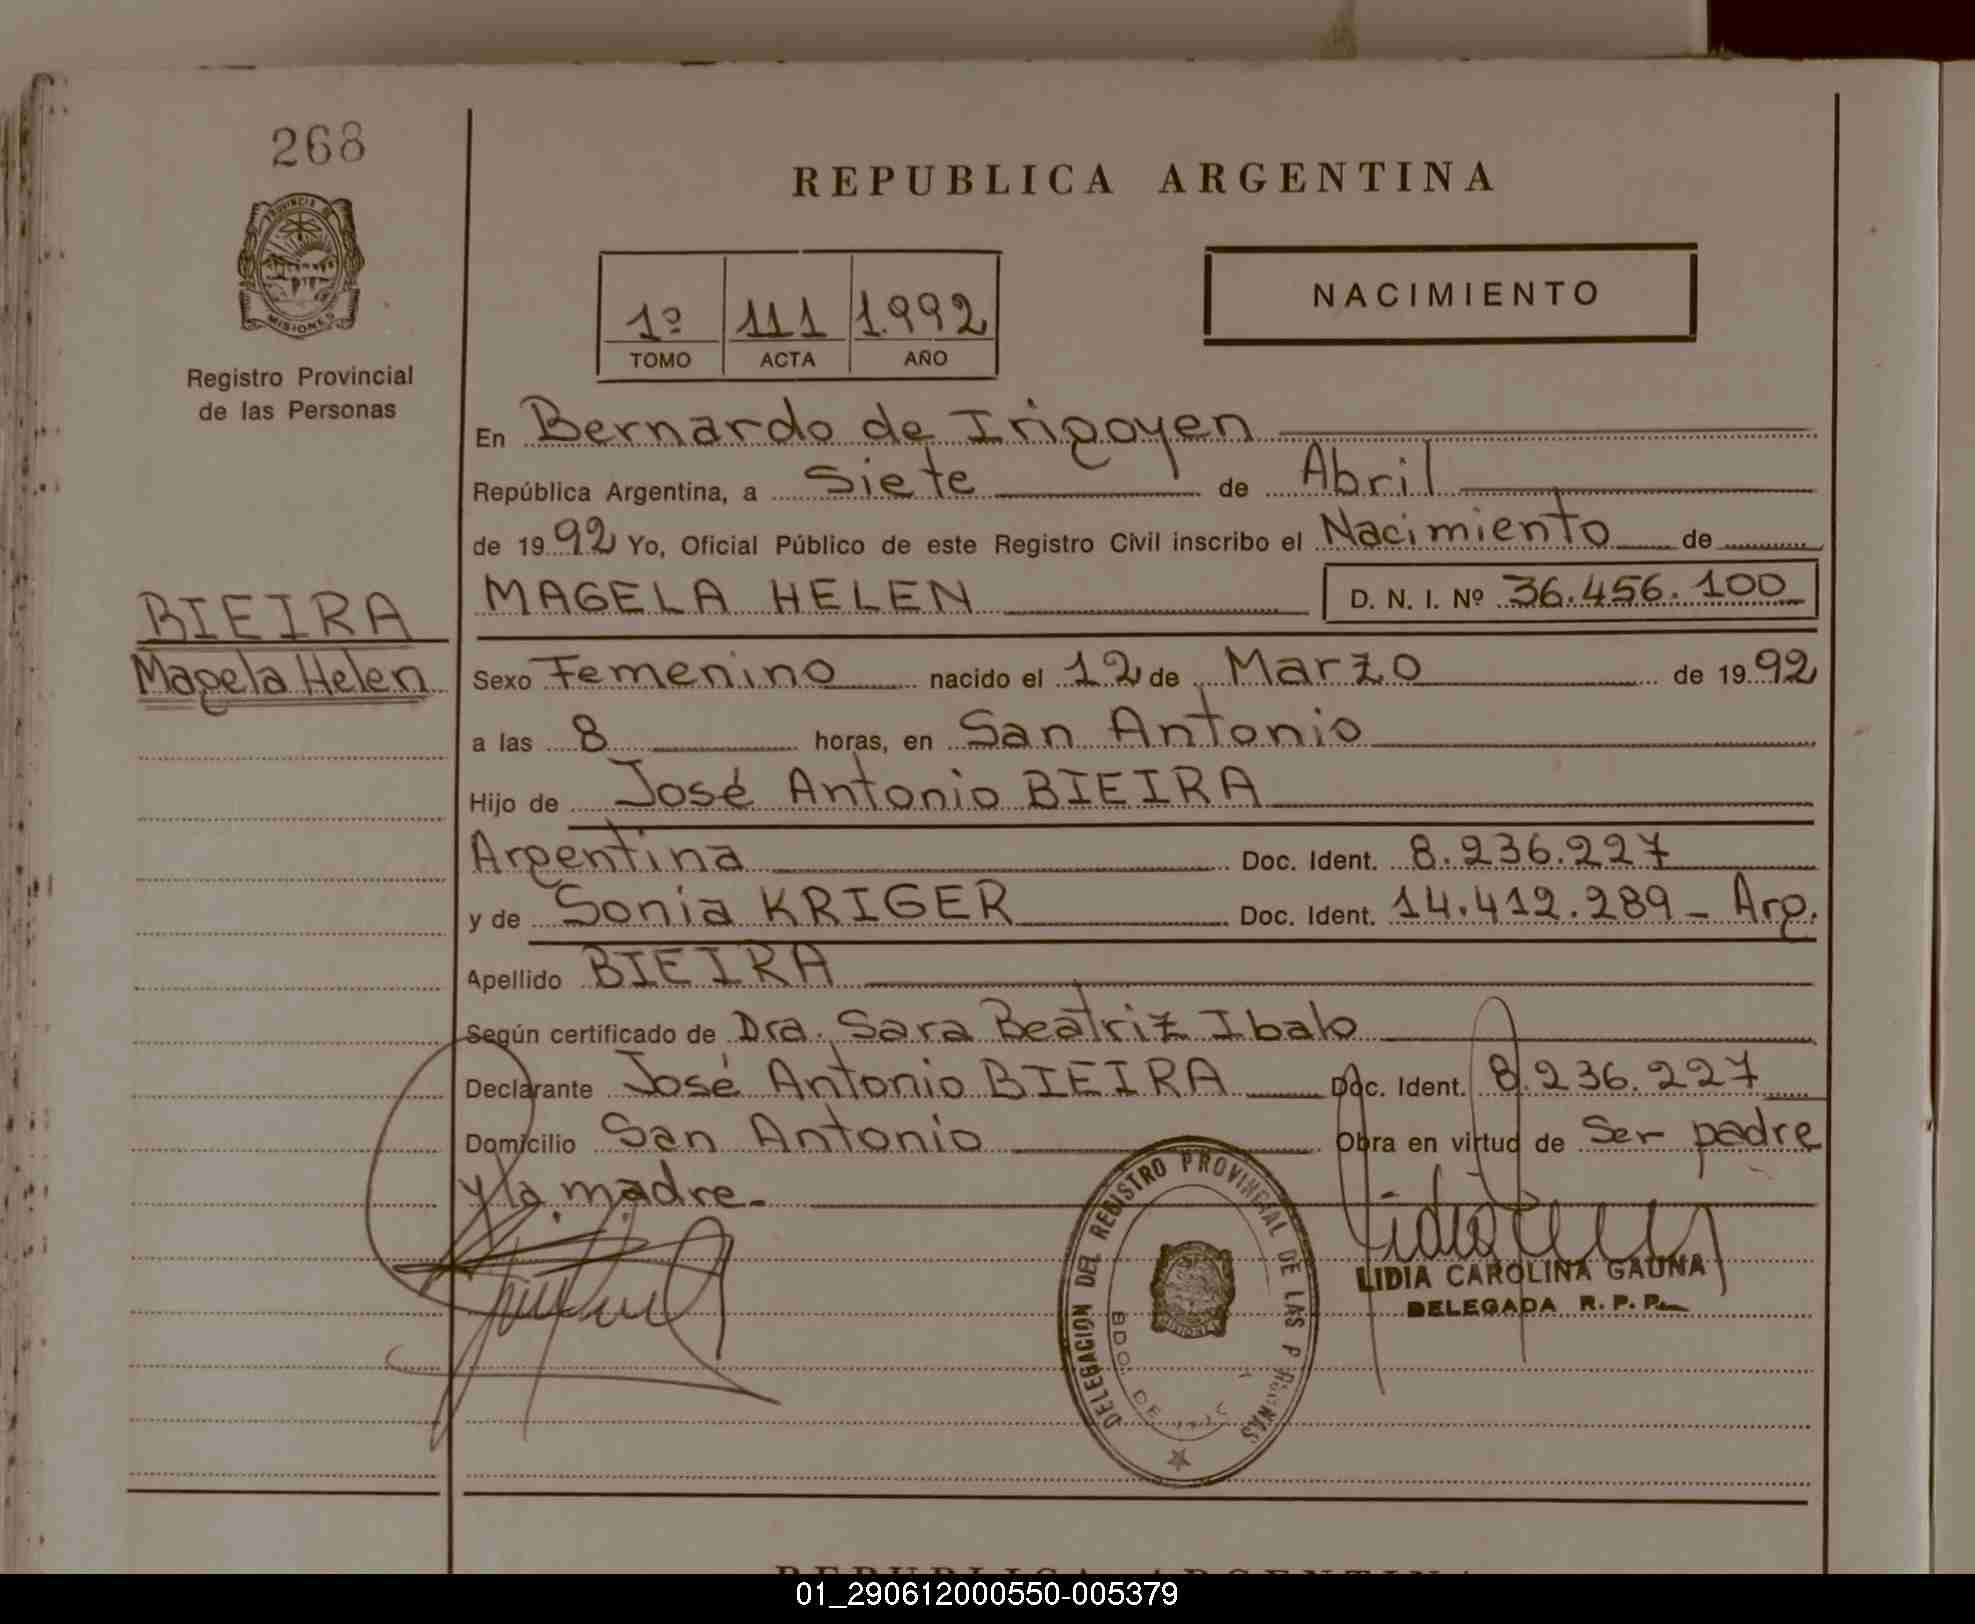 268
PROVINCIA DE
MISIONES
Registro Provincial
de las Personas
BIEIRA
Magela Helen
REPUBLICA ARGENTINA
1º 111 1.992
TOMO ACTA AÑO
NACIMIENTO
En Bernardo de Irigoyen
República Argentina, a Siete de Abril
de 1992 Yo, Oficial Público de este Registro Civil inscribo el Nacimiento de
MAGELA HELEN D. N. I. Nº 36.456.100
Sexo Femenino nacido el 12 de Marzo de 1992
a las 8 horas, en San Antonio
Hijo de José Antonio BIEIRA
Argentina Doc. Ident. 8.236.227
y de Sonia KRIGER Doc. Ident. 14.412.289 - Arg.
Apellido BIEIRA
Según certificado de Dra. Sara Beatriz Ibalo
Declarante José Antonio BIEIRA Doc. Ident. 8.236.227
Domicilio San Antonio Obra en virtud de Ser padre
y la madre.-
DELEGACION DEL REGISTRO PROVINCIAL DE LAS
BDO. DE
MISIONES
LIDIA CAROLINA GAUNA
DELEGADA R. P. P.
REPUBLICA ARGENTINA
01_290612000550-005379